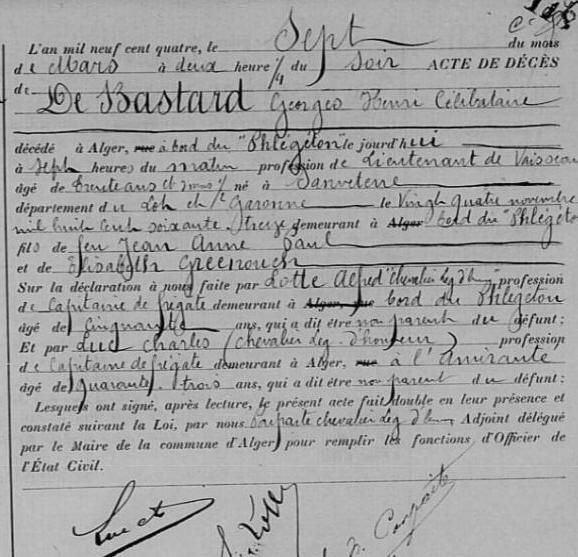 L'an mil neuf cent quatre, le Sept du mois
de Mars à deux heure ¼ du Soir ACTE DE DÉCÈS
de De Bastard Georges Henri Célibataire
décédé à Alger, rue à bord du "Phlégéton" le jourd'hui
à Sept heures du matin profession de Lieutenant de Vaisseau
âgé de trente ans et 3 mois ½ né à
département du Lot et Garonne le Vingt quatre novembre
mil huit cent soixante treize demeurant à Alger bord du "Phlégéton
fils de feu Jean Anne Paul
et de Elisabeth Greenough
Sur la déclaration à nous faite par Lotte Alfred "chevalier Lég d'hon" profession
de Capitaine de frégate demeurant à Alger, rue bord du Phlégéton
âgé de Cinquante ans, qui a dit être non parent du défunt;
Et par Luc Charles (chevalier Lég. d'honneur) profession
de Capitaine de frégate demeurant à Alger, rue à l'Amirauté
âgé de quarante trois ans, qui a dit être non parent du défunt:
Lesquels ont signé, après lecture, le présent acte fait double en leur présence et
constaté suivant la Loi, par nous chevalier Lég d'hon, Adjoint délégué
par le Maire de la commune d'Alger pour remplir les fonctions d'Officier de
l'État Civil.